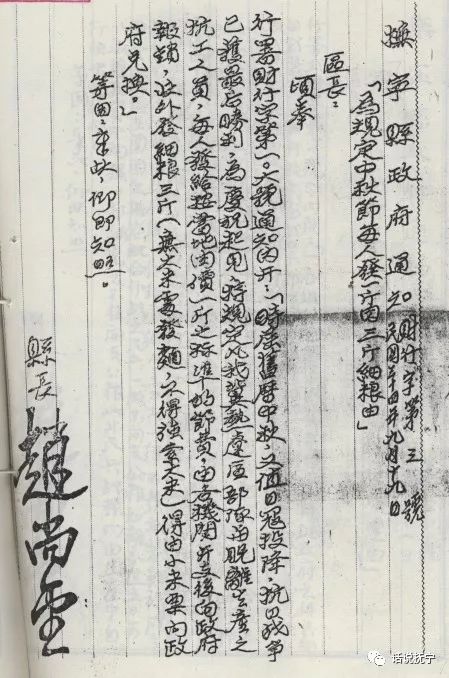 撫寧縣政府通知 財行字第三號
民國三十四年九月十九日
「為規定中秋節每人發一斤肉三斤細粮由」
區長:
頃奉
行署財行字第一〇六號通知內開:「時屆舊曆中秋,又值日寇投降,抗日战爭
已獲最后勝利,為慶祝起見,特規定凡我冀熱遼區部隊脫離生產之
抗工人員,每人發給按當地肉價一斤之标準的節費,由各機關開支後向政府
報銷,此外發細粮三斤(無大米處發麵,不得強索大米)得由小米票向政
府兌換。」
等因,奉此,仰即知照。
縣長 趙尚
话说抚宁